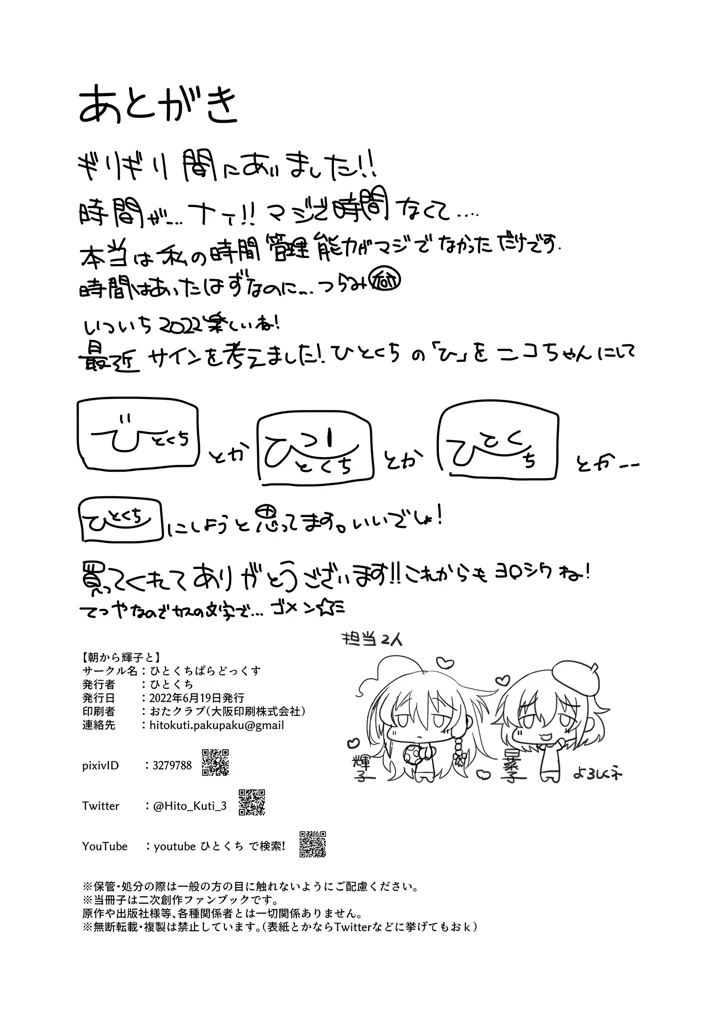 あとがき
ギリギリ間にあいました!!
時間が…ナイ!!マジで時間なくて….
本当は私の時間管理能力がマジでなかっただけです.
時間はあいたはずなのに…つらみ
いついち2022楽しいね!
最近サインを考えました!ひとくちの「ひ」をニコちゃんにして
ひとくち とか ひとくち とか ひとくち とか--
ひとくち にしようと思ってます。いいでしょ!
買ってくれてありがとうございます!!これからもヨロシクね!
てつやなのでカスの文字で…ゴメン☆ミ
担当2人
輝子
日菜子
よろしくネ
【朝から輝子と】
サークル名：ひとくちぱらどっくす
発行者　：ひとくち
発行日　：2022年6月19日発行
印刷者　：おたクラブ(大阪印刷株式会社)
連絡先　：hitokuti.pakupaku@gmail
pixivID　：3279788
Twitter　：@Hito_Kuti_3
YouTube　：youtube ひとくち で検索!
※保管・処分の際は一般の方の目に触れないようにご配慮ください。
※当冊子は二次創作ファンブックです。
原作や出版社様等、各種関係者とは一切関係ありません。
※無断転載・複製は禁止しています。(表紙とかならTwitterなどに挙げてもおｋ)